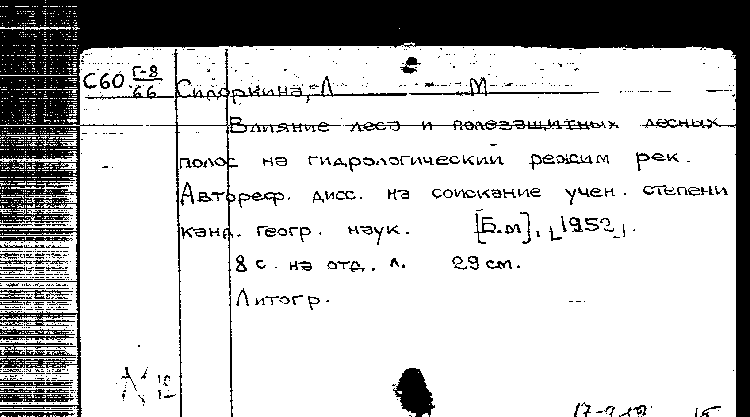 С60 Г-8/66 Сидоркина, Л М
Влияние леса и полезащитных лесных
полос на гидрологический режим рек.
Автореф. дисс. на соискание учен. степени
канд. геогр. наук. [Б.м], [1952].
8 с. на отд. л. 29 см.
Литогр.